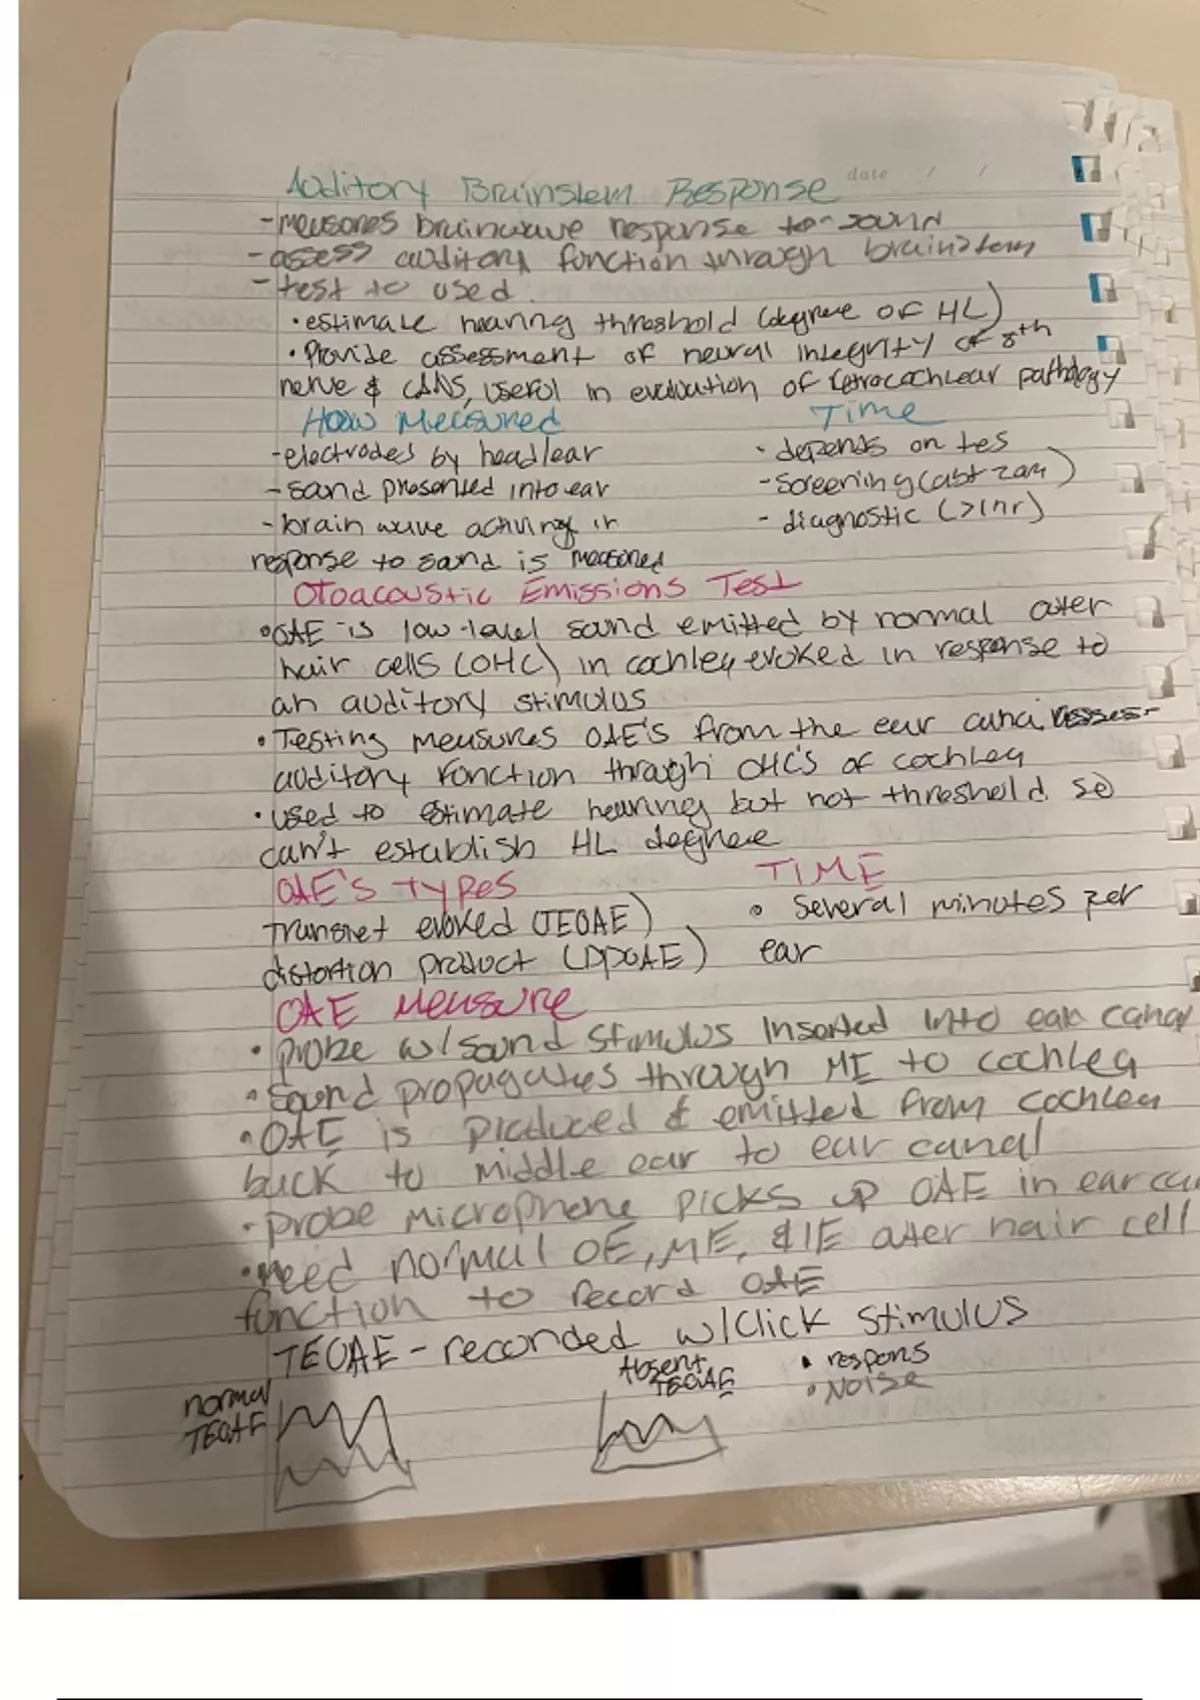 Auditory Brainstem Response
date / /
- measores brainwave response to sound
- assess auditory function through brainstem
- test to used.
• estimate hearing threshold (degree of HL)
• Provide assessment of neural integrity of 8th
nerve & CANS, useful in evaluation of retrocochlear pathology
How Measured
Time
- electrodes by head/ear
- depends on tes
- sound presented into ear
- screening (abt 20m)
- brain wave activity in
- diagnostic (>1hr)
response to sound is measored
Otoacoustic Emissions Test
• OAE is low-level sound emitted by normal outer
hair cells (OHC) in cochlea, evoked in response to
an auditory stimulus
• Testing measures OAE's from the ear canal assess-
auditory function through OHC's of cochlea
• used to estimate hearing but not threshold so
can't establish HL degree
OAE's Types
TIME
transiet evoked (TEOAE)
• Several minutes per
distortion product (DPOAE)
ear
OAE Measure
• probe w/sound stimulus inserted into ear canal
• Sound propagates through ME to cochlea
• OAE is produced & emitted from cochlea
back to middle ear to ear canal
• probe microphone picks up OAE in ear ca
• need normal OE, ME, & IE outer hair cell
function to record OAE
TEOAE - recorded w/click stimulus
normal
TEOAE
Absent
TEOAE
• respons
• Noise